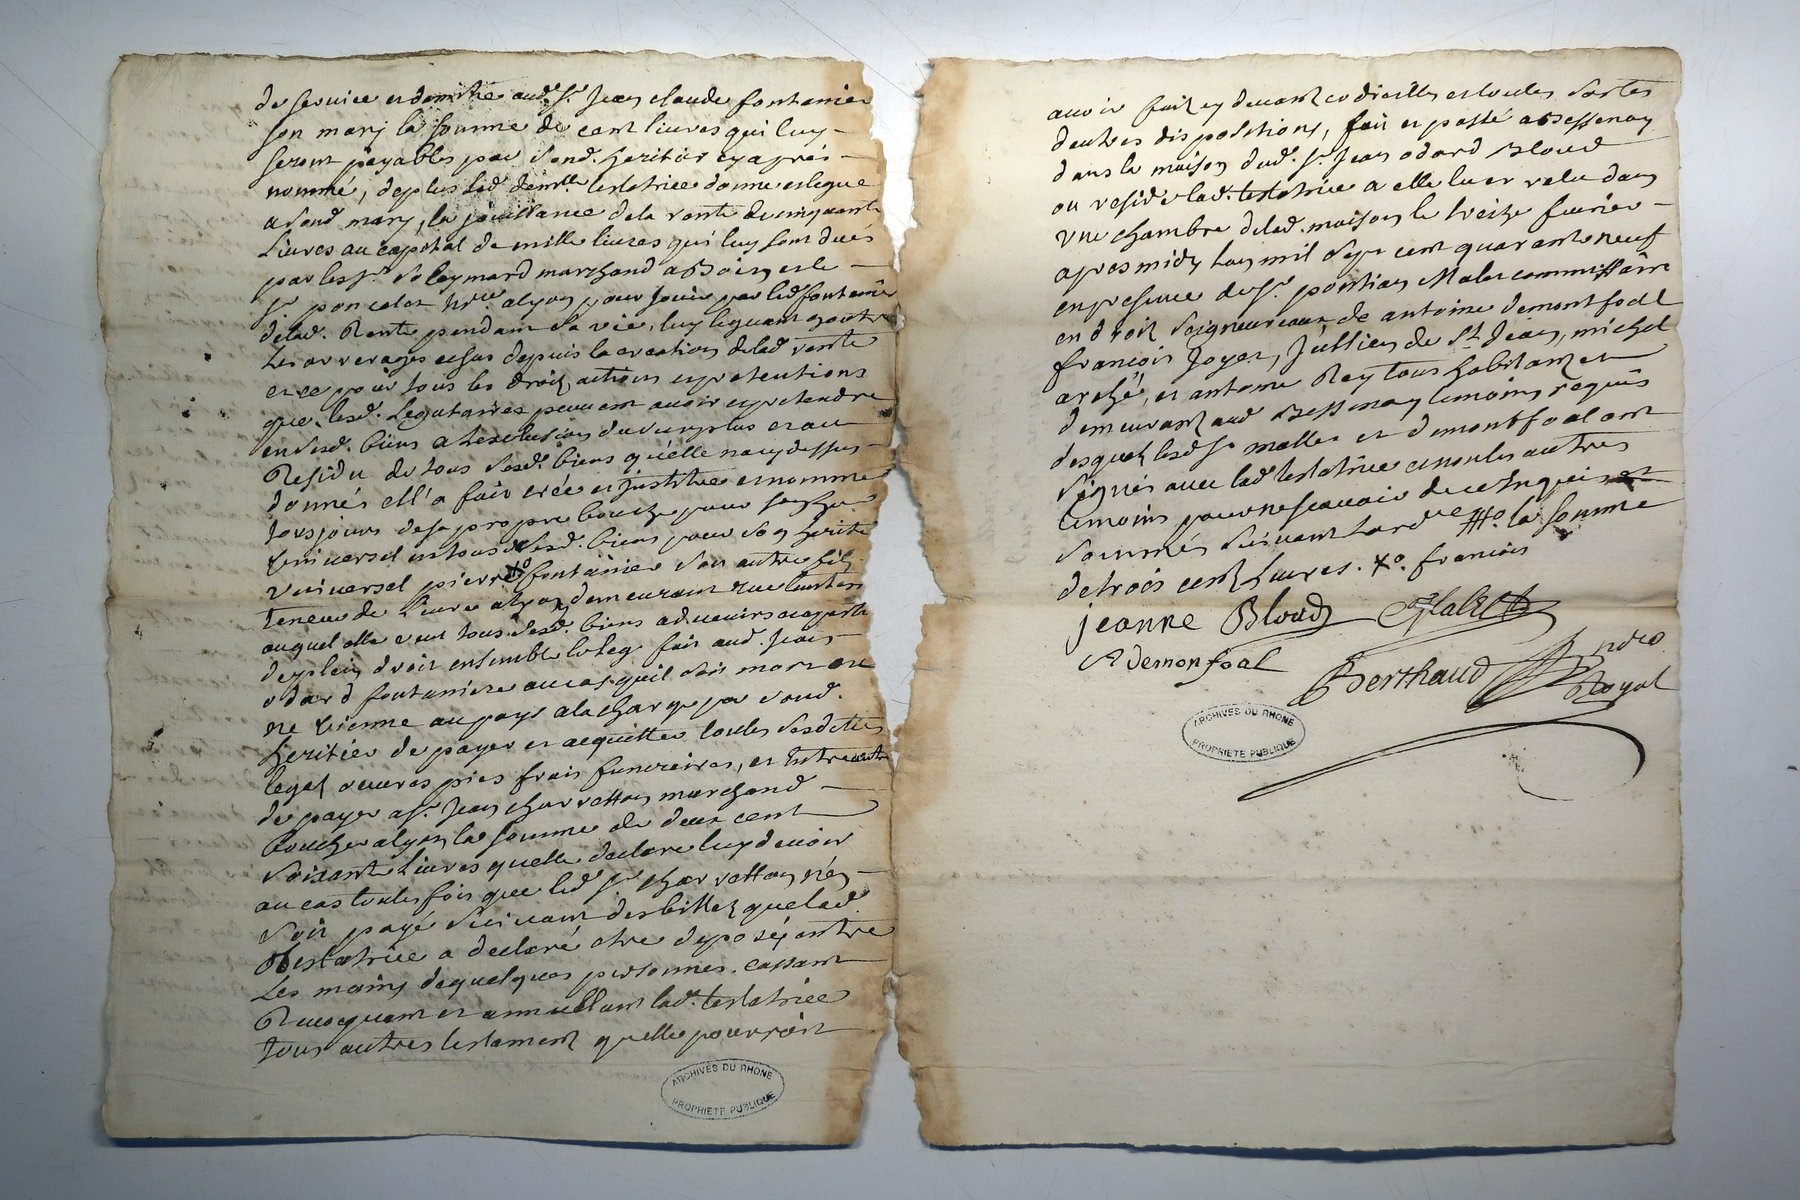 de service et domitié aud. Sr. Jean claude fontanier
son mary la somme de cent livres qui luy
seront payables par sond. heritier cy aprés
nommé, deplus lad. demlle testatrice donne et legue
a sond mary, la jouissance dela rente de cinquante
livres au capital de mille livres qui luy sont dués
par les Srs. Soleymard marchand a Boin et le
Sr. poncelet nre. alyon pour jouir par led fontanie
delad. Rente pendant sa vie, luy leguant
les arrerages echus depuis la creation delad rente
et ce pour tous les droits, actions et pretentions
que lesd. Legataires peuvent avoir et pretendre
en sesd. biens a lexclusion du surplus et au
Residu de tous sesd. biens qu'elle n'a cy dessus
donnés ell'a fait creé et jnstitue et nomme
tousjours de sa propre bouche pour
universel en tous sesd. biens pour son herite
universel pierre Xo fontanier son autre fils
teneur de livre alyon demeurant rue
auquel elle veut tous sesd. biens advenir et appartenir
deplein droit ensemble le leg fait aud. jean
odard fontaniere au cas quil soit mort ou
ne vienne au pays ala charge par sond.
heritier de payer et acquitter toutes sesdettes
legat oeuvres pies frais funeraires, et
de payer a Sr. Jean charretton marchand
boucher alyon la somme de deux cent
soixante livres quelle declare luy devoir
au cas toutes fois que led Sr. charretton n'en
soit payé suivant des billets que lad
testatrice a declaré etre deposéy entre
les mains de quelques personnes. cassant
Revoquant et annullant lad. testatrice
tous autres testament quelle pourroit
ARCHIVES DU RHONE
PROPRIETE PUBLIQUE
avoir fait cy devant codicilles et toutes sortes
dautres dispositions, fait et passé a Bessenay
dans la maison dud. Sr. Jean odard Bloud
ou reside lad. testatrice a elle lu et relu dans
une chambre delad. maison le treize fevrier
apres midy lan mil sept cent quarante neuf
en presence de Sr. pontian Malet commissaire
en droit seigneuriaux, de antoine demontfoal
françois Joyet, Jullien du St. Jean, michel
arché, et antoine Rey tous habitant et
demeurant aud Bessenay temoins requis
desquels lesd Sr mallet et demontfoal ont
signés avec lad testatrice et non les autres
temoins pour ne scavoir de ce enquis et
sommés suivant lord.ce ##o. la somme
de trois cent livres. Xo. francois
jeanne Bloud Malet
A demonfoal
Berthaud nore
Royal
ARCHIVES DU RHONE
PROPRIETE PUBLIQUE